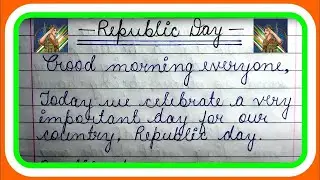 Republic Day
Good morning everyone,
Today we celebrate a very
important day for our
country, Republic day.